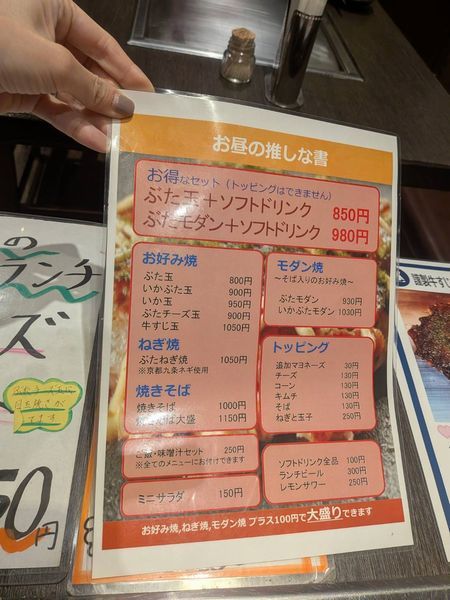 お昼の推しな書
お得なセット（トッピングはできません）
ぶた玉＋ソフトドリンク 850円
ぶたモダン＋ソフトドリンク 980円
お好み焼
ぶた玉 800円
いかぶた玉 900円
いか玉 950円
ぶたチーズ玉 900円
牛すじ玉 1050円
ねぎ焼
ぶたねぎ焼 1050円
※京都九条ネギ使用
焼きそば
焼きそば 1000円
焼きそば大盛 1150円
ご飯・味噌汁セット 250円
※全てのメニューにお付けできます
ミニサラダ 150円
モダン焼
～そば入りのお好み焼～
ぶたモダン 930円
いかぶたモダン 1030円
トッピング
追加マヨネーズ 30円
チーズ 130円
コーン 130円
キムチ 130円
そば 130円
ねぎと玉子 250円
ソフトドリンク全品 100円
ランチビール 300円
レモンサワー 250円
お好み焼,ねぎ焼,モダン焼 プラス100円で大盛りできます
の
ランチ
ズ
50円
謹製牛すじ